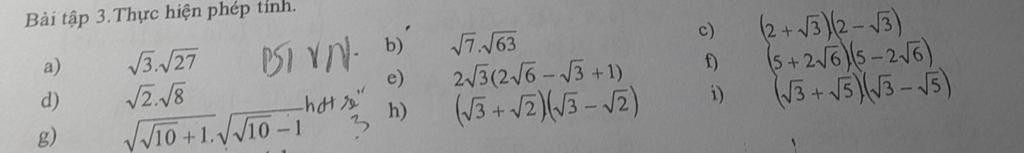 Bài tập 3.Thực hiện phép tính.
a) √3.√27 b) √7.√63 c) (2 + √3)(2 − √3)
d) √2.√8 e) 2√3(2√6 − √3 + 1) f) (5 + 2√6)(5 − 2√6)
g) √(√10 + 1).√(√10 − 1) h) (√3 + √2)(√3 − √2) i) (√3 + √5)(√3 − √5)